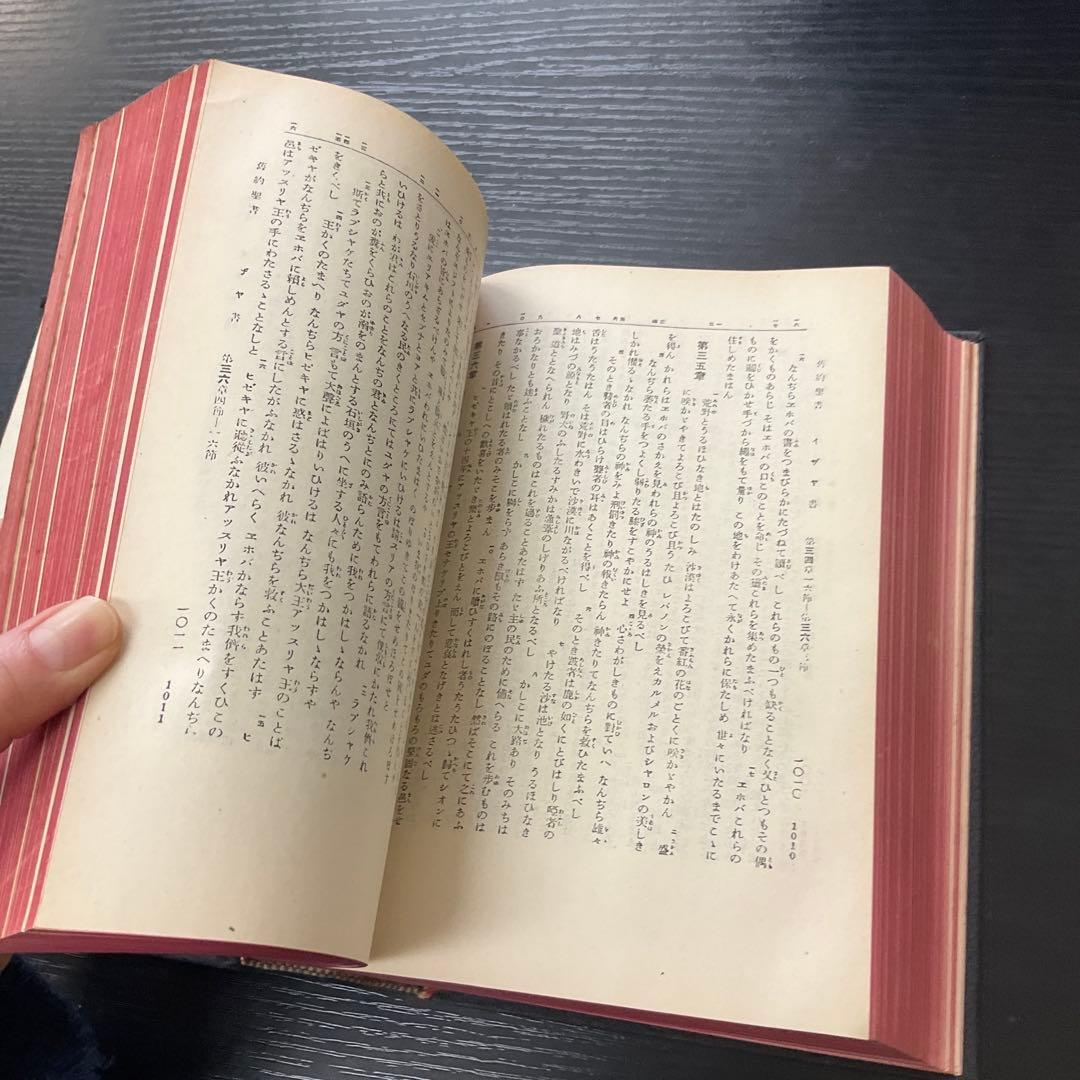 舊約聖書 イザヤ書 第三四章一六節―第三六章 節 一〇一〇 1010
なんぢらヱホバの書をつまびらかにたづねて讀べし これらのもの一つも缺ることなく又ひとつもその偶
をかくものあらじ そはヱホバの口このことを命じ その靈これらを集めたまふべければなり 一七 ヱホバこれらの
ものに鬮をひかせ手づから繩をもて量り この地をわけあたへて永くかれらに保たしめ 世々にいたるまでこゝに
住しめたまはん
第三五章 荒野とうるほひなき地とはたのしみ 沙漠はよろこびて番紅の花のごとくに咲かゞやかん 二 盛
に咲かゞやきてよろこび且よろこび且うたひ レバノンの榮をえカルメルおよびシャロンの美しき
を得ん かれらはヱホバのさかえを見われらの神のうるはしきを見るべし
三 なんぢら萎たる手をつよくし弱りたる膝をすこやかにせよ 四 心さわがしきものに對ていへ なんぢら雄々
しかれ懼るゝなかれ なんぢらの神をみよ 刑罰きたり神の報きたらん 神きたりてなんぢらを救ひたまふべし
五 そのとき瞽者の目はひらけ聾者の耳はあくことを得べし 六 そのとき跛者は鹿の如くにとびはしり啞者の
舌はうたうたはん そは荒野に水わきいで沙漠に川ながるべければなり 七 やけたる沙は池となり うるほひなき
地はみづの源となり 野犬のふしたるすみかは蘆葦のしげりあふ所となるべし 八 かしこに大路あり そのみちは
聖道ととなへられん 穢れたるものはこれを過ることあたはず たゞ主の民のために備へらる これを歩むものは
おろかなりとも迷ふことなし 九 かしこに獅をらず あらき獸もその路にのぼることなし 然ばそこにて之にあふ
事なかるべし たゞ贖はれたる者のみそこを歩まん 一〇 ヱホバに贖ひすくはれし者うたうたひつゝ歸てシオンに
きたり その首にとこしへの歡喜をいたゞき 樂とよろこびとをえん 而して悲哀となげきとは逃さるべし
第三六章 ヒゼキヤ王の十四年にアッスリヤの王セナケリブ上りきたりてユダのもろもろの堅固なる邑をせ
をさとりうるなり 石垣のうへなる民のきくところにてはユダヤの方言をもてわれらに語るなかれ 一二 ラブシャケ
いひけるは わが君はこれらのことをなんぢの君となんぢとにのみ語らんために我をつかはしゝならんや なんぢ
らと共におのが糞をくらひおのが溺をのまんとする石垣のうへに坐する人々にも我をつかはしゝならずや
一三 斯てラブシャケたちてユダヤの方言もて大聲によばはりいひけるは なんぢら大王アッスリヤ王のことば
をきくべし 一四 王かくのたまへり なんぢらヒゼキヤに惑はさるゝなかれ 彼なんぢらを救ふことあたはず 一五 ヒ
ゼキヤがなんぢらをヱホバに賴しめんとする言にしたがふなかれ 彼いへらく ヱホバかならず我儕をすくひこの
邑はアッスリヤ王の手にわたさるゝことなしと 一六 ヒゼキヤに聽從ふなかれアッスリヤ王かくのたまへりなんぢに
舊約聖書 ザヤ書 第三六章四節―一六節 一〇一一 1011